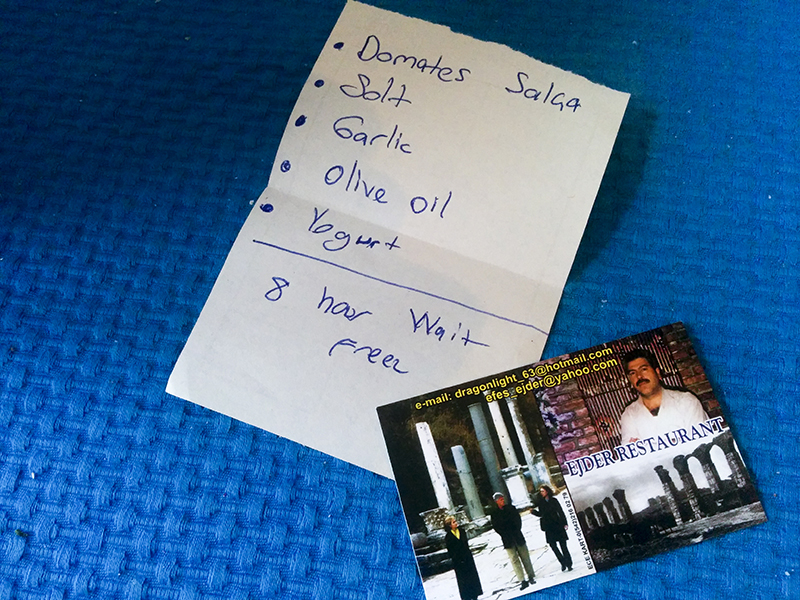 • Domates Salça
• Solt
• Garlic
• Olive oil
• Yogurt
8 hour Wait
Freez
e-mail: dragonlight_63@hotmail.com
efes_ejder@yahoo.com
EJDER RESTAURANT